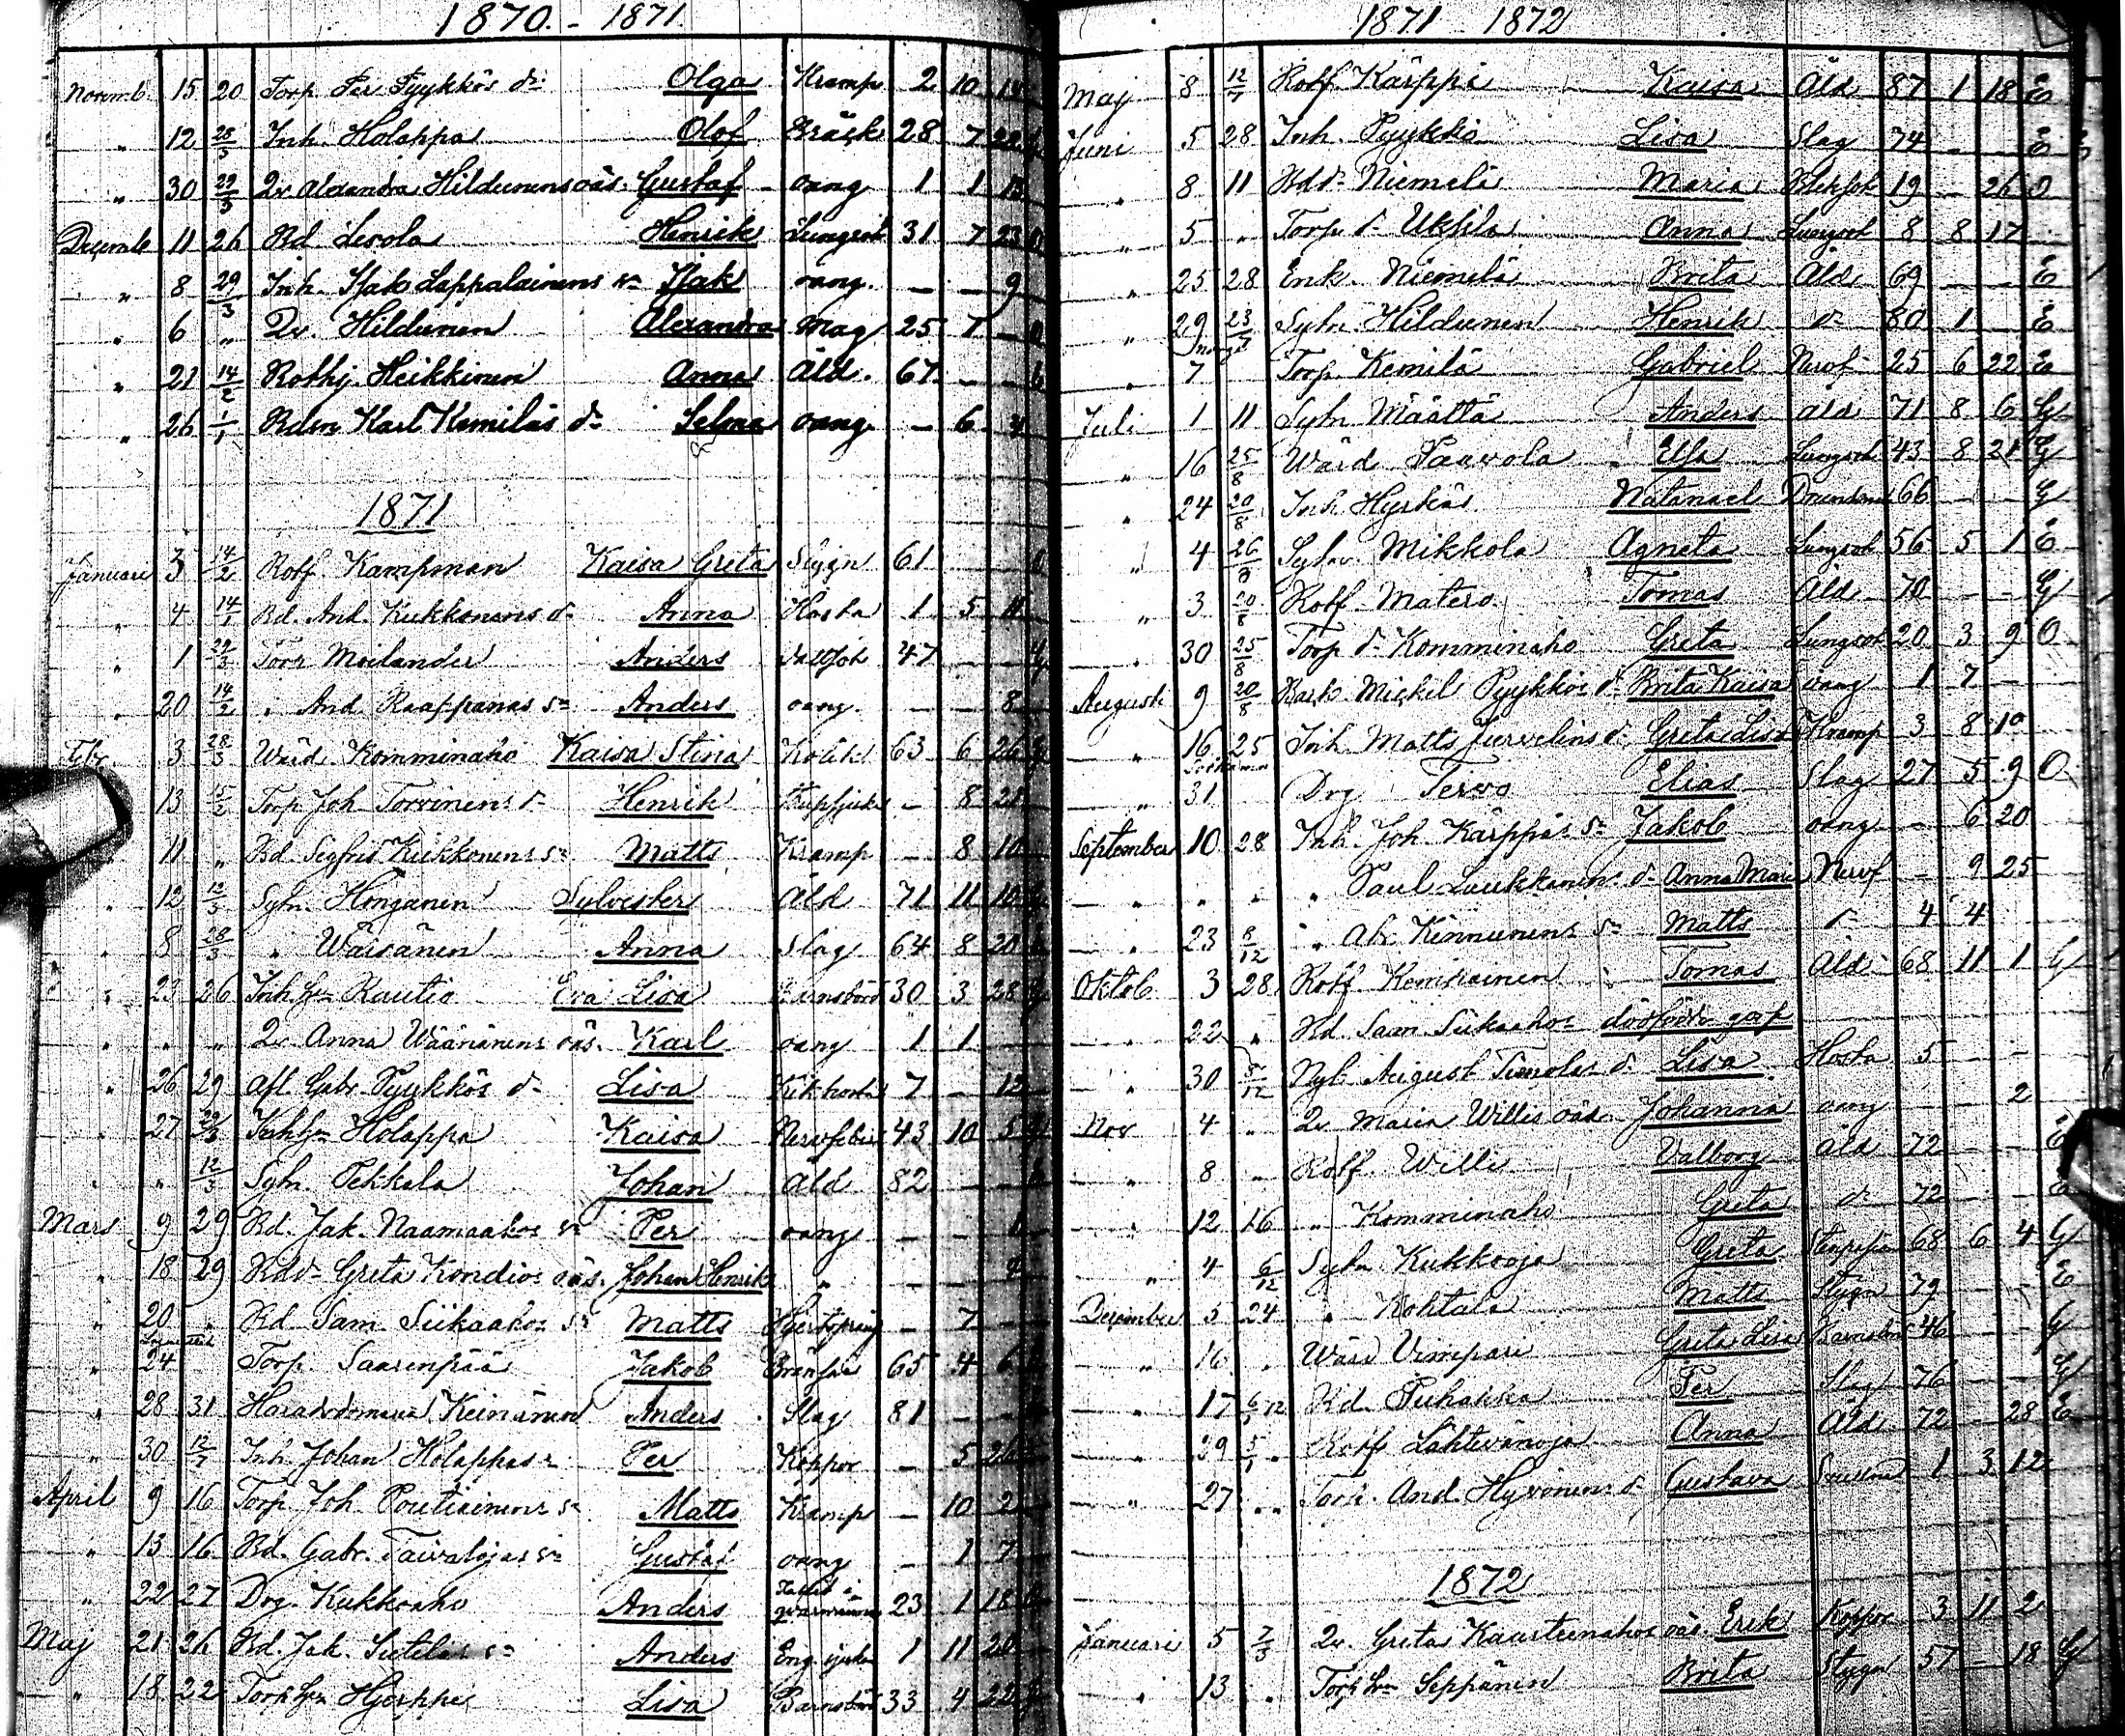 1870 - 1871
Novemb. 15 20 Torp. Per Pyykkös dr Olga Kramp 2 10 14
" 12 28/3 Inh. Holappa Olof Bräck 28 7 22
" 30 29/3 Qv. Alexandra Hildunens oäs. Gustaf oäng 1 1 13
Decemb 11 26 Bd Levola Henrik Lungsot 31 7 23
" 8 29/3 Inh. Isak Lappalainens sn Isak oäng. — — 9
" 6 " Qv. Hildunen Alexandra Mag 25 7 —
" 21 14/2 Rothj. Heikkinen Anna Åld. 67 — —
" 26 1/1 Bdsn Karl Kemiläs dr Selma oäng — 6 4
1871
Januari 3 14/2 Rotf. Kampman Kaisa Greta Stygn 61
" 4 14/1 Bd. And. Kukkonens dr Anna Hosta 1 5 11
" 1 29/3 Torp Moilander Anders 47 — —
" 20 14/2 " And. Raappanas sn Anders oäng. — — 8
Febr. 3 28/3 Wärd. Komminaho Kaisa Stina Kolik 63 6 26
" 13 15/2 Torp. Joh Torvinens Henrik — 8 28
" 11 " Bd Segfrid Kukkonens sn Matts Kramp — 8 10
" 12 12/3 Sytn. Honganen Sylvester Åld 71 11 10
" 8 28/3 " Wäisänen Anna Slag 64 8 20
" 23 26 Inh hu Rautio Eva Lisa Barnsbörd 30 3 28
" " " Qv Anna Wäänänens oäs. Karl oäng 1 1
" 26 29 Afl. Gabr. Pyykkös dr Lisa Kikhosta 7 — 12
" 27 29/3 Inh hu Holappa Kaisa Nervfeber 43 10 5
" " 12/3 Sytn. Pekkala Johan Åld 82 — —
Mars 9 29 Bd. Jak. Naamaahos sn Per oäng — —
" 18 29 Bdr Greta Kondios oäs. Johan Henrik " — —
" 20 " Bd Sam Siikaahos sn Matts — 7 —
" 24 Torp. Saarenpää Jakob 65 4 6
" 28 31 Häradsdomare Keinänen Anders Slag 81 — —
" 30 12/7 Inh Johan Holappas sn Per Koppor — 5 26
April 9 16 Torp Joh Poutiainens sn Matts Kramp — 10 2
" 13 16 Bd. Gabr. Taivalojas sn Gustaf oäng — 1 7
" 22 27 Drg. Kukkoaho Anders 23 1 18
Maj 21 26 Bd. Jak. Sutelas sn Anders Eng. sjuka 1 11 20
" 18 22 Torp hu Hjerppe Lisa Barnsbörd 33 4 22
1871 - 1872
Maj 8 12/7 Rotf Kärppä Kaisa Åld 87 1 18 E
Juni 5 28 Inh. Pyykkö Lisa Slag 74 — — E
" 8 11 Bdr Niemelä Maria 19 — 26 O
" 5 " Torp. dr Ukkila Anna Lungsot 8 8 17
" 25 28 Enk. Niemelä Brita Åld 69 — — E
" 29 23/7 Sytn. Hildunen Henrik dr 80 1 — E
" 7 Torp. Kemilä Gabriel Nervf 25 6 22 E
Juli 1 11 Sytn Määttä Anders Åld 71 8 6 G
" 16 25/8 Wärd Paavola Ulla Lungsot 43 8 21 G
" 24 20/8 Inh. Hyrkäs Natanael 66 — — G
" 4 26/8 Sytn Mikkola Agneta Lungsot 56 5 1 E
" 3 20/8 Rotf Matero Tomas Åld 70 — — G
" 30 25/8 Torp dr Komminaho Greta Lungsot 20 3 9 O
Augusti 9 20/8 Back Mickel Pyykkös dr Brita Kaisa oäng 1 7 —
" 16 25 Inh. Matts Jurvelins dr Greta Lisa Kramp 3 8 10
" 31 Drg Tervo Elias Slag 27 5 9 O
September 10 28 Inh. Joh. Kärppäs sn Jakob oäng — 6 20
" " " " Paul Laukkanens dr Anna Maria Nervf — 9 25
" 23 8/12 " Ab. Kinnunens sn Matts dr 4 4
Oktob 3 28 Rotf Kemppainen Tomas Åld 68 11 1 G
" 22 " Bd. Sam. Siikaahos dödfödde
" 30 8/12 Nyb August Timolas dr Lisa Hosta 5 — —
Nov 4 " Qv Maria Willis oäs. Johanna oäng — — 2
" 8 " Rotf. Willi Valborg Åld 72 — — E
" 12 16 " Komminaho Greta dr 72 — — E
" 4 6/12 Sytn Kukkooja Greta 68 6 4 G
December 5 24 " Kohtala Matts Stygn 79 — — E
" 16 " Wärd Vimpari Greta Lisa Barnsbörd 46 — — G
" 17 Bd. Puhakka Per Slag 76 — — G
" 29 5/1 Rotf Lähtevänoja Anna Åld 72 — 28 E
" 27 " Torp. And. Hyvönens dr Gustava 1 3 12
1872
Januari 5 7/3 Qv. Greta Kaarteenahos oäs Erik Koppor 3 11 2
" 13 " Torp hu Seppänen Brita Stygn 57 — 18 G